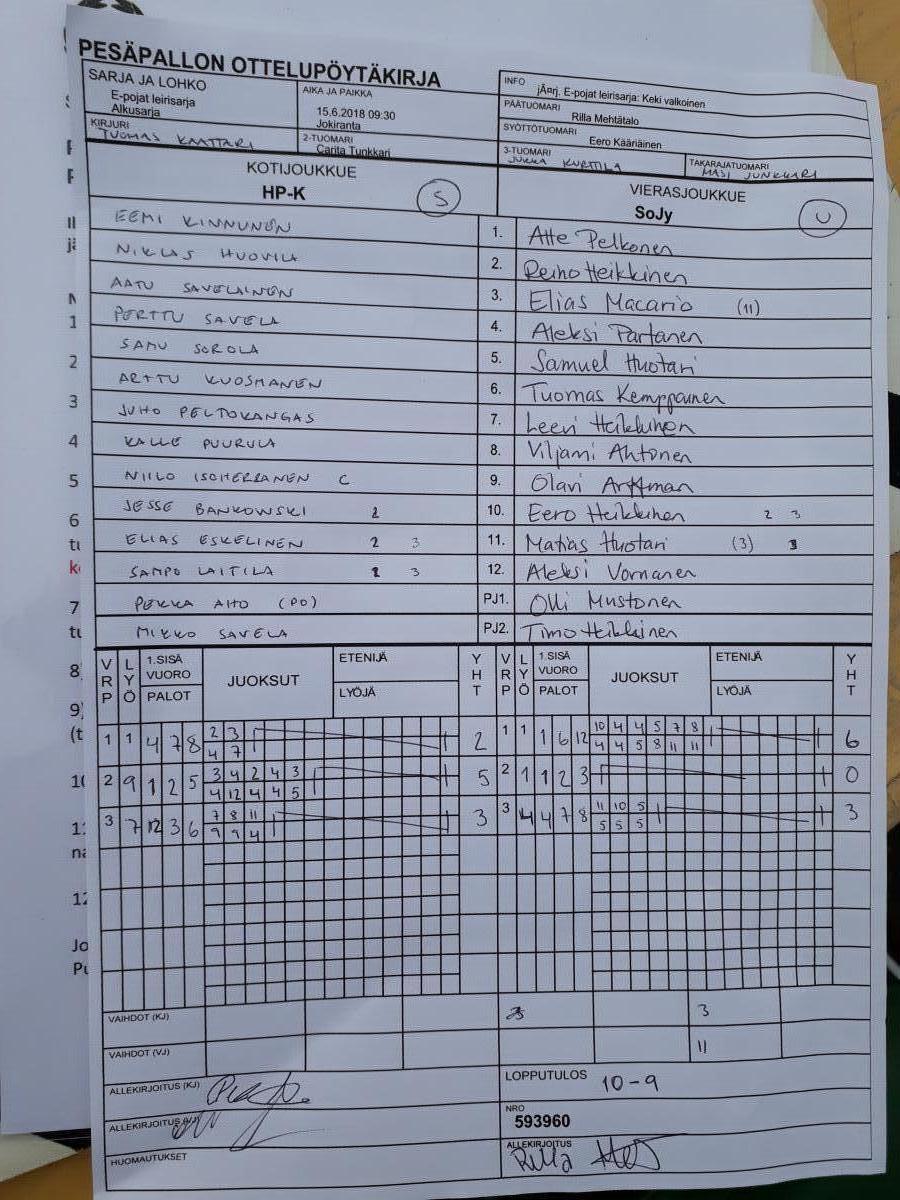 PESÄPALLON OTTELUPÖYTÄKIRJA
SARJA JA LOHKO
E-pojat leirisarja
Alkusarja
AIKA JA PAIKKA
15.6.2018 09:30
Jokiranta
KIRJURI
TUOMAS KAATTARI
2-TUOMARI
Carita Tunkkari
INFO
jÃ¤rj. E-pojat leirisarja: Keki valkoinen
PÄÄTUOMARI
Rilla Mehtätalo
SYÖTTÖTUOMARI
Eero Kääriäinen
3-TUOMARI
JUKKA KURTTILA
TAKARAJATUOMARI
MASI JUNKKARI
KOTIJOUKKUE
HP-K S
VIERASJOUKKUE
SoJy U
EEMI KINNUNEN 1. Atte Pelkonen
NIKLAS HUOVILA 2. Reino Heikkinen
AATU SAVELAINEN 3. Elias Macario (11)
PERTTU SAVELA 4. Aleksi Partanen
SAMU SOROLA 5. Samuel Huotari
ARTTU KUOSMANEN 6. Tuomas Kemppainen
JUHO PELTOKANGAS 7. Leevi Heikkinen
KALLE PUURULA 8. Viljami Ahtonen
NIILO ISOHERRANEN C 9. Olavi Arffman
JESSE BANKOWSKI 2 10. Eero Heikkinen 2 3
ELIAS ESKELINEN 2 3 11. Matias Huotari (3) 3
SAMPO LAITILA 2 3 12. Aleksi Vornanen
PEKKA AHO (PO) PJ1. Olli Mustonen
MIKKO SAVELA PJ2. Timo Heikkinen
VRP LYÖ 1.SISÄ VUORO PALOT JUOKSUT ETENIJÄ LYÖJÄ YHT VRP LYÖ 1.SISÄ VUORO PALOT JUOKSUT ETENIJÄ LYÖJÄ YHT
1 1 4 7 8 2 3 2 1 1 1 6 12 10 4 4 5 7 8 6
4 7 4 4 5 8 11 11
2 9 1 2 5 3 4 2 4 3 5 2 1 1 2 3 0
4 12 4 4 5
3 7 12 3 6 7 8 11 3 3 4 7 8 11 10 5 3
9 9 4 5 5 5
VAIHDOT (KJ) 3
VAIHDOT (VJ) 11
ALLEKIRJOITUS (KJ)
LOPPUTULOS 10-9
ALLEKIRJOITUS (VJ)
NRO
593960
HUOMAUTUKSET
ALLEKIRJOITUS
Rilla